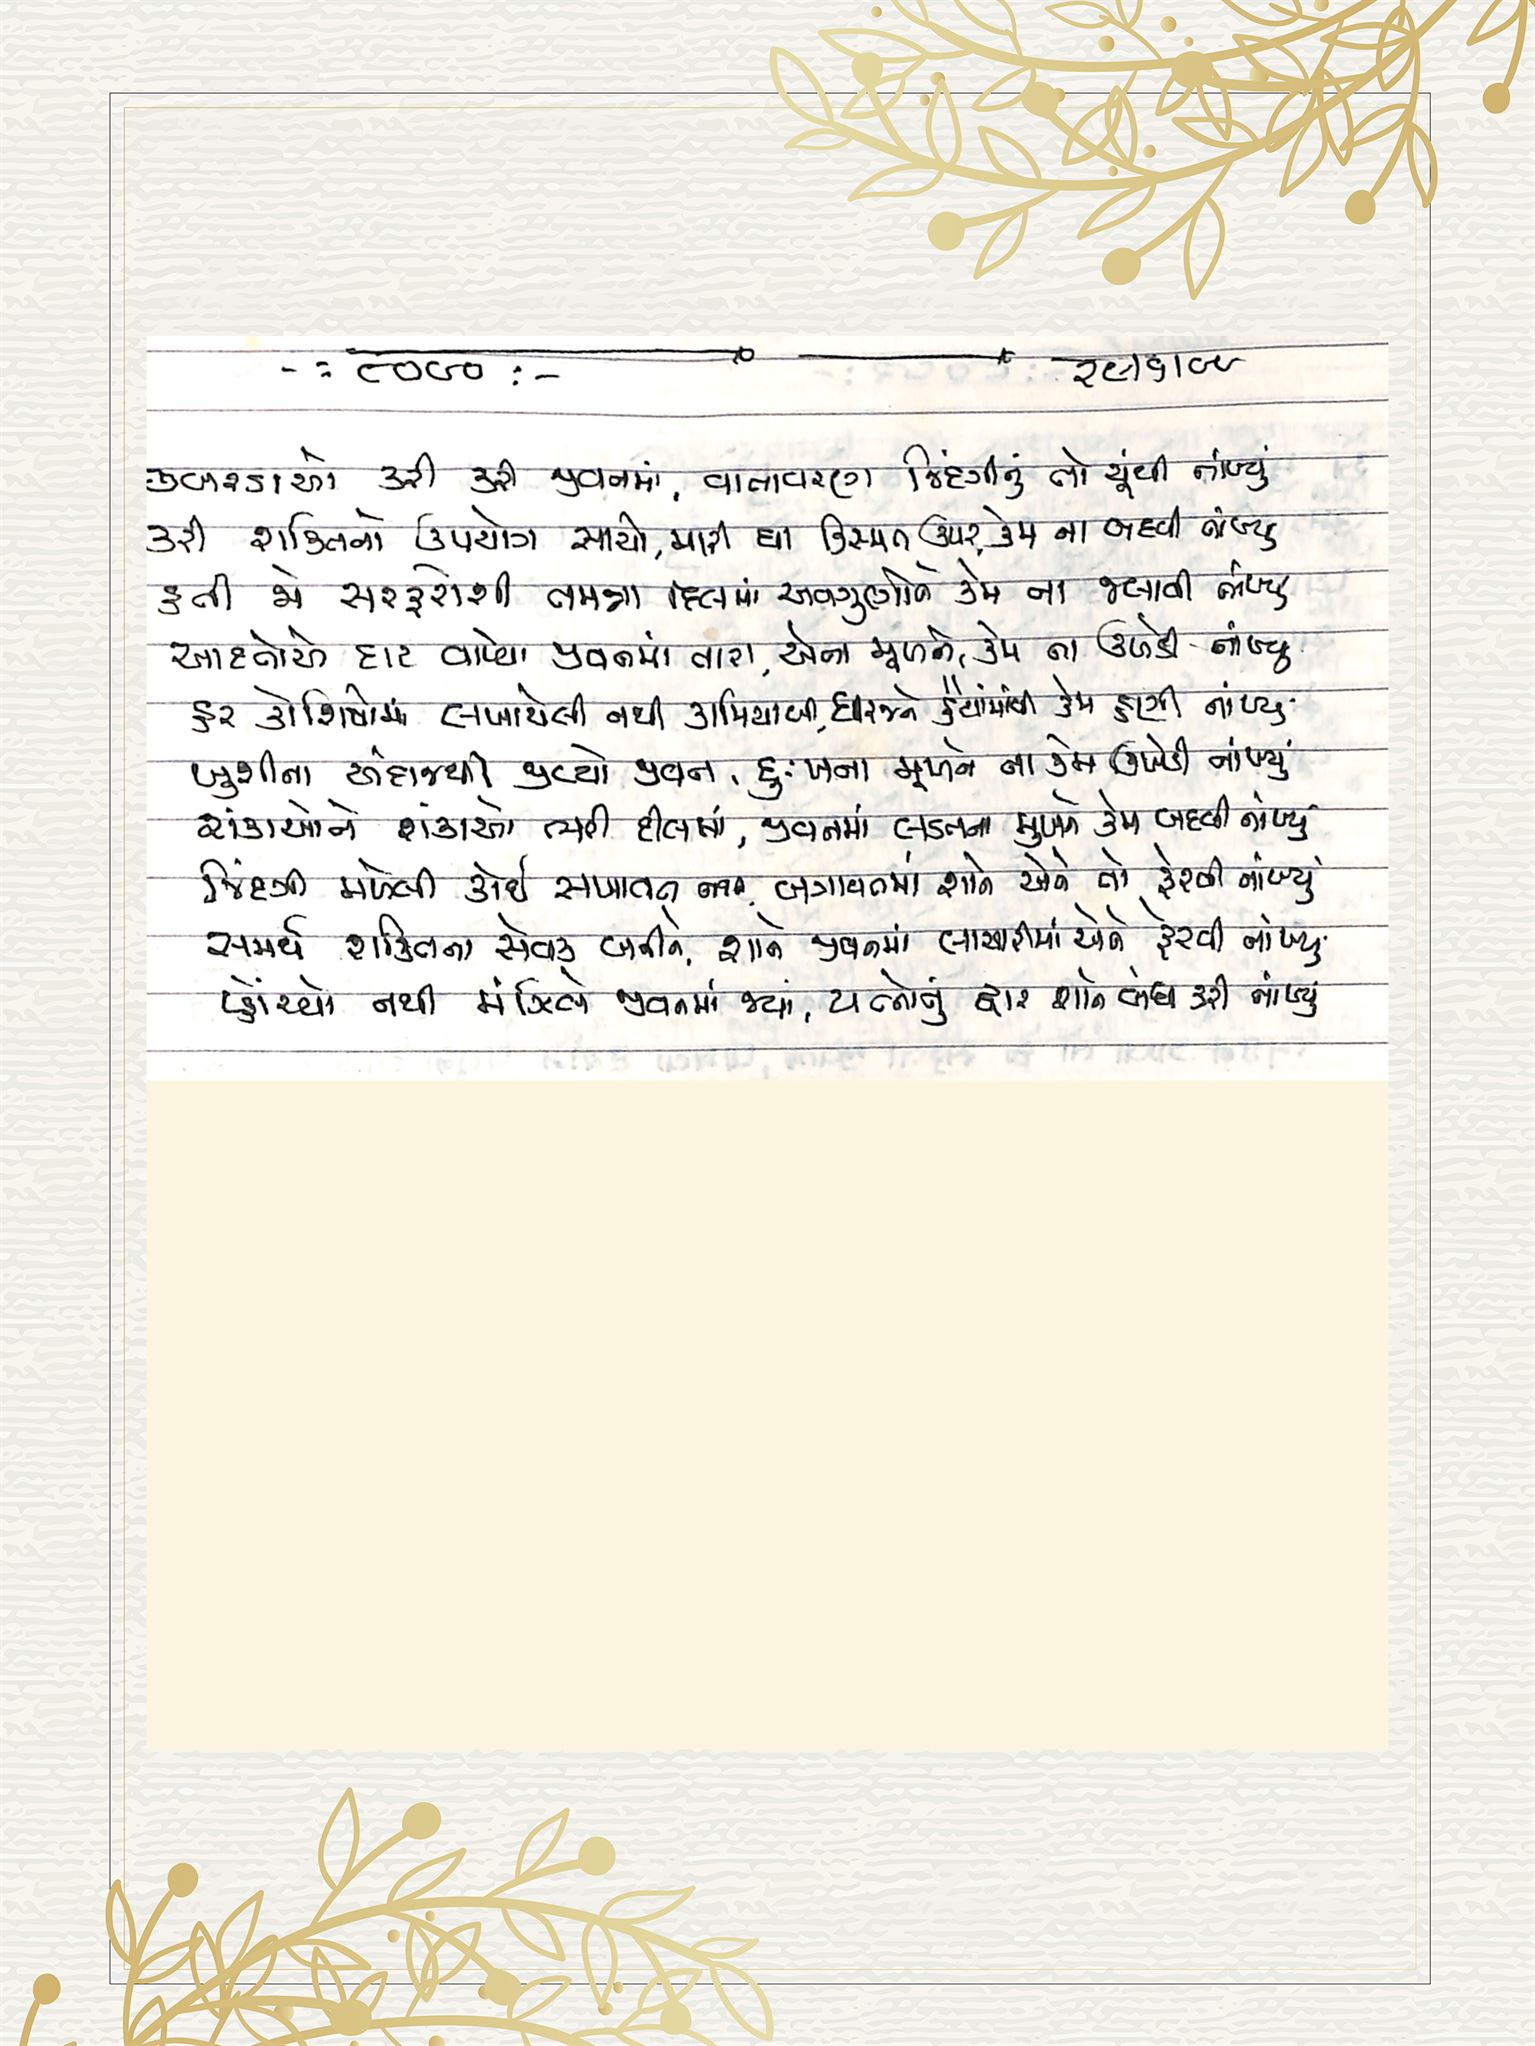 -: ૯૦૭૦ :-
જબરડાઓ કરી કરી જીવનમાં, વાતાવરણ જિંદગીનું તો ચૂંથી નાંખ્યું
કરી શક્તિનો ઉપયોગ સાચો, મારી ઘા કિસ્મત ઉપર, કેમ ના બદલી નાંખ્યું
હતી જો સરફરોશી તમન્ના દિલમાં અવગુણોને કેમ ના જલાવી નાંખ્યું
આદતોએ દાટ વાળ્યા જીવનમાં તારા, એના મૂળને, કેમ ના ઉખેડી નાંખ્યું
હર કોશિષોમાં લખાયેલી નથી કામિયાબી, ધીરજને હૈયાંમાંથી કેમ હણી નાંખ્યું
ખુશીના અંદાજથી જીવ્યો જીવન, દુઃખના મૂળને ના કેમ ઉખેડી નાંખ્યું
શંકાઓને શંકાઓ ભરી દીલમાં, જીવનમાં લડતના મુખને કેમ બદલી નાંખ્યું
જિંદગી મળેલી કોઈ સખાવત નથી, બગાવતમાં શાને એને તો ફેરવી નાંખ્યું
સમર્થ શક્તિના સેવક બનીને, શાને જીવનમાં લાચારીમાં એને ફેરવી નાંખ્યું
પ્હોંચ્યો નથી મંઝિલે જીવનમાં જ્યાં, યત્નોનું દ્વાર શાને બંધ કરી નાંખ્યું